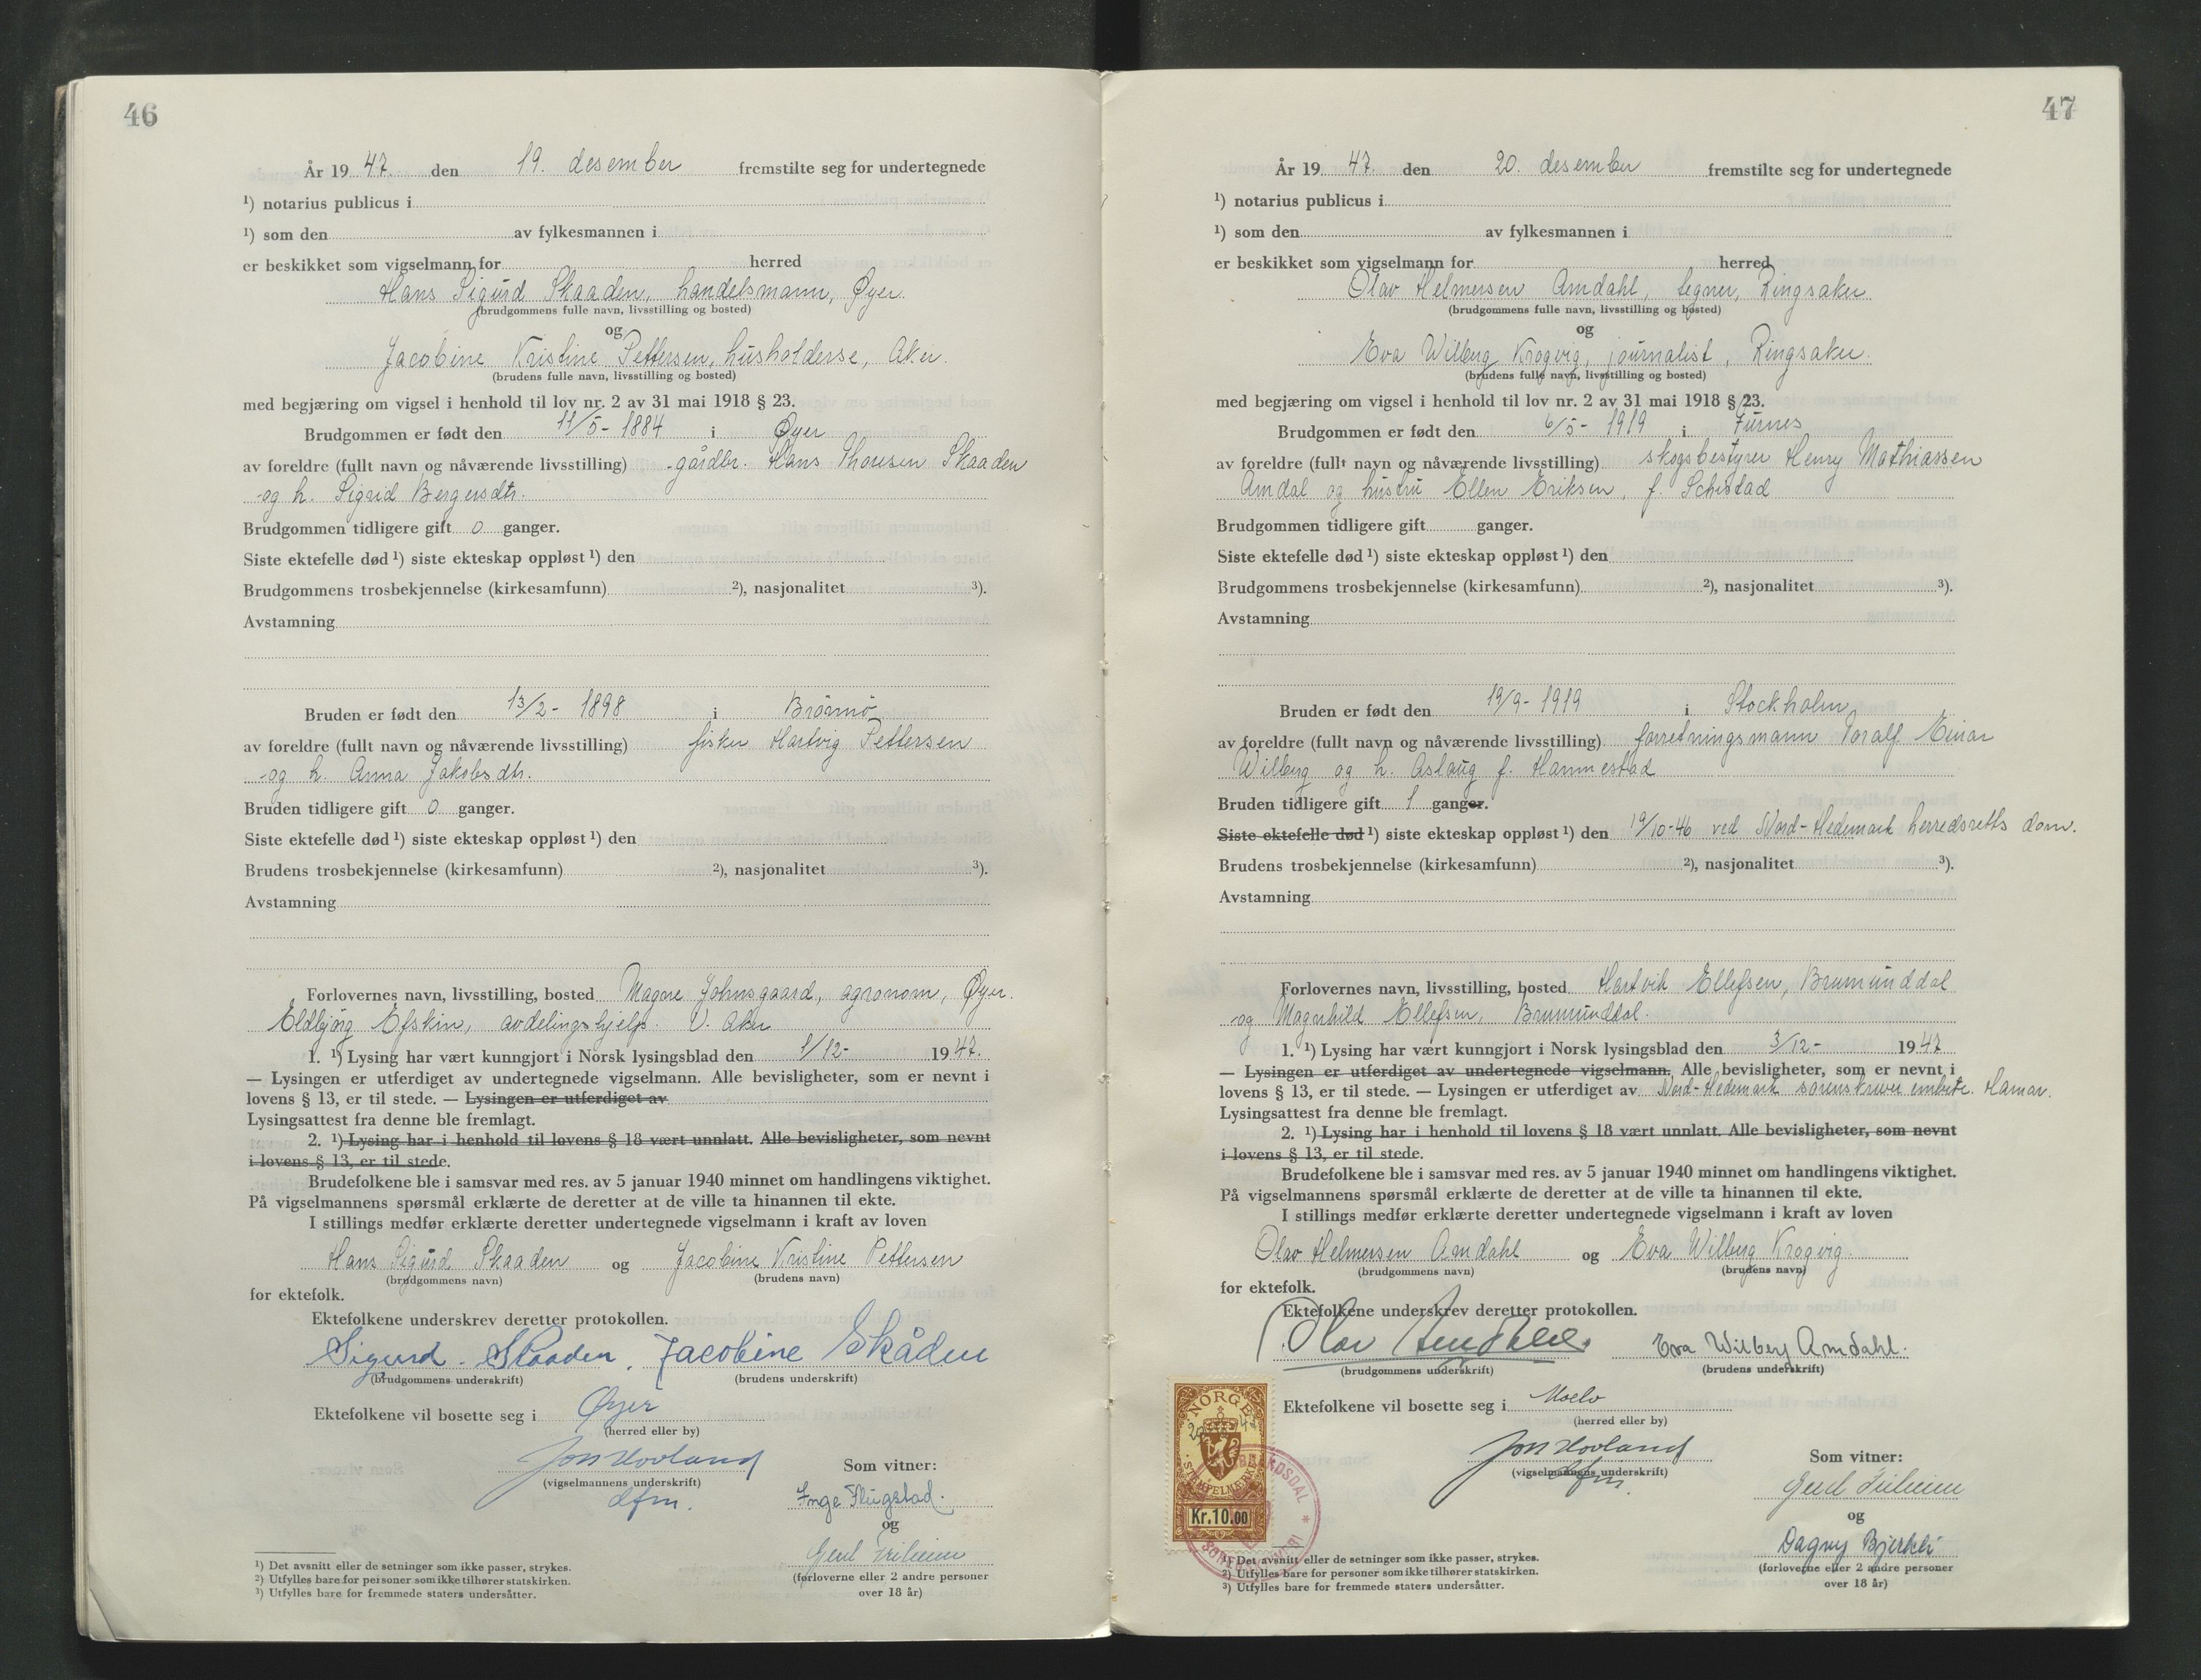 46
År 19 47. den 19. desember fremstilte seg for undertegnede
¹) notarius publicus i
¹) som den av fylkesmannen i
er beskikket som vigselmann for herred
Hans Sigurd Skaaden, handelsmann, Øyer.
(brudgommens fulle navn, livsstilling og bosted)
og
Jacobine Kristine Pettersen, husholderse, Aker.
(brudens fulle navn, livsstilling og bosted)
med begjæring om vigsel i henhold til lov nr. 2 av 31 mai 1918 § 23.
Brudgommen er født den 11/5- 1884 i Øyer
av foreldre (fullt navn og nåværende livsstilling) gårdbr. Hans Thoresen Skaaden
og h. Sigrid Bergersdtr.
Brudgommen tidligere gift 0 ganger.
Siste ektefelle død ¹) siste ekteskap oppløst ¹) den
Brudgommens trosbekjennelse (kirkesamfunn) ²), nasjonalitet ³).
Avstamning
Bruden er født den 13/2- 1898 i Brønnø
av foreldre (fullt navn og nåværende livsstilling) fisker Hartvig Pettersen
og h. Anna Jakobsdtr.
Bruden tidligere gift 0 ganger.
Siste ektefelle død ¹) siste ekteskap oppløst ¹) den
Brudens trosbekjennelse (kirkesamfunn) ²), nasjonalitet ³).
Avstamning
Forlovernes navn, livsstilling, bosted Magne Johnsgaard, agronom, Øyer.
Eldbjørg Efskin, avdelingshjelp. V. Aker
1. ¹) Lysing har vært kunngjort i Norsk lysingsblad den 1/12- 19 47.
— Lysingen er utferdiget av undertegnede vigselmann. Alle bevisligheter, som er nevnt i
lovens § 13, er til stede. — Lysingen er utferdiget av
Lysingsattest fra denne ble fremlagt.
2. ¹) Lysing har i henhold til lovens § 18 vært unnlatt. Alle bevisligheter, som nevnt
i lovens § 13, er til stede.
Brudefolkene ble i samsvar med res. av 5 januar 1940 minnet om handlingens viktighet.
På vigselmannens spørsmål erklærte de deretter at de ville ta hinannen til ekte.
I stillings medfør erklærte deretter undertegnede vigselmann i kraft av loven
Hans Sigurd Skaaden og Jacobine Kristine Pettersen
(brudgommens navn) (brudens navn)
for ektefolk.
Ektefolkene underskrev deretter protokollen.
Sigurd Skaaden. Jacobine Skåden
(brudgommens underskrift) (brudens underskrift)
Ektefolkene vil bosette seg i Øyer
(herred eller by)
Jon Hovland
(vigselmannens underskrift)
dfm.
Som vitner:
Inge Flugstad.
og
Gerd
(forloverne eller 2 andre personer
over 18 år)
¹) Det avsnitt eller de setninger som ikke passer, strykes.
²) Utfylles bare for personer som ikke tilhører statskirken.
³) Utfylles bare for fremmede staters undersåtter.
47
År 19 47. den 20. desember fremstilte seg for undertegnede
¹) notarius publicus i
¹) som den av fylkesmannen i
er beskikket som vigselmann for herred
Olav Helmersen Amdahl, tegner, Ringsaker
(brudgommens fulle navn, livsstilling og bosted)
og
Eva Wilberg Krogvig, journalist, Ringsaker.
(brudens fulle navn, livsstilling og bosted)
med begjæring om vigsel i henhold til lov nr. 2 av 31 mai 1918 § 23.
Brudgommen er født den 6/5- 1919 i Furnes
av foreldre (fullt navn og nåværende livsstilling) skogsbestyrer Henry Mathiassen
Amdal og hustru Ellen Eriksen, f. Schistad
Brudgommen tidligere gift ganger.
Siste ektefelle død ¹) siste ekteskap oppløst ¹) den
Brudgommens trosbekjennelse (kirkesamfunn) ²), nasjonalitet ³).
Avstamning
Bruden er født den 19/9- 1919 i Stockholm
av foreldre (fullt navn og nåværende livsstilling) forretningsmann Toralf Einar
Wilberg og h. Aslaug f. Hannestad
Bruden tidligere gift 1 ganger.
Siste ektefelle død ¹) siste ekteskap oppløst ¹) den 19/10-46 ved Nord-Hedemark herredsretts dom.
Brudens trosbekjennelse (kirkesamfunn) ²), nasjonalitet ³).
Avstamning
Forlovernes navn, livsstilling, bosted Hartvik Ellefsen, Brumunddal
og Magnhild Ellefsen, Brumunddal.
1. ¹) Lysing har vært kunngjort i Norsk lysingsblad den 3/12- 19 47
— Lysingen er utferdiget av undertegnede vigselmann. Alle bevisligheter, som er nevnt i
lovens § 13, er til stede. — Lysingen er utferdiget av Nord-Hedemark sorenskriver embete. Hamar.
Lysingsattest fra denne ble fremlagt.
2. ¹) Lysing har i henhold til lovens § 18 vært unnlatt. Alle bevisligheter, som nevnt
i lovens § 13, er til stede.
Brudefolkene ble i samsvar med res. av 5 januar 1940 minnet om handlingens viktighet.
På vigselmannens spørsmål erklærte de deretter at de ville ta hinannen til ekte.
I stillings medfør erklærte deretter undertegnede vigselmann i kraft av loven
Olav Helmersen Amdahl og Eva Wilberg Krogvig.
(brudgommens navn) (brudens navn)
for ektefolk.
Ektefolkene underskrev deretter protokollen.
Olav Amdahl. Eva Wilberg Amdahl.
(brudgommens underskrift) (brudens underskrift)
Ektefolkene vil bosette seg i Moelv
(herred eller by)
Jon Hovland
(vigselmannens underskrift)
dfm.
Som vitner:
Gerd
og
Dagny Bjerkli
(forloverne eller 2 andre personer
over 18 år)
NORGE
STEMPELMERKE
Kr.10.00
¹) Det avsnitt eller de setninger som ikke passer, strykes.
²) Utfylles bare for personer som ikke tilhører statskirken.
³) Utfylles bare for fremmede staters undersåtter.